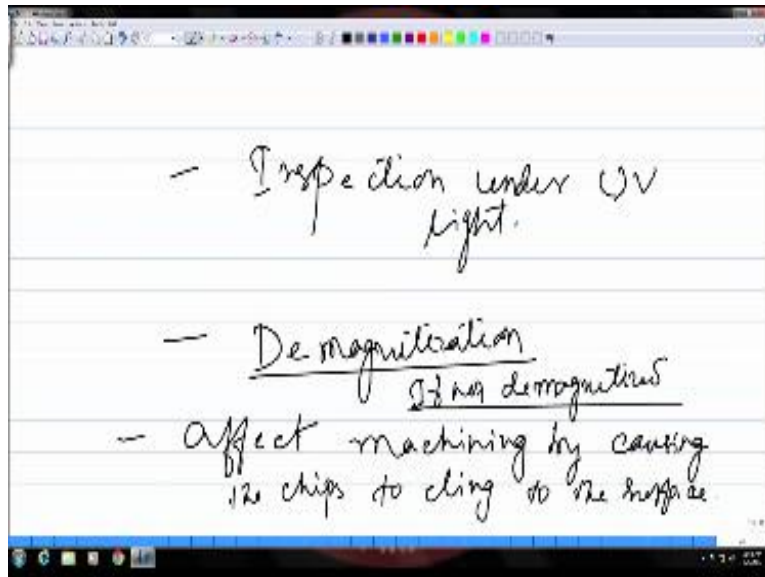 - Inspection under UV
light.
- Demagnetization
If not demagnetized
- Affect machining by causing
the chips to cling to the surface